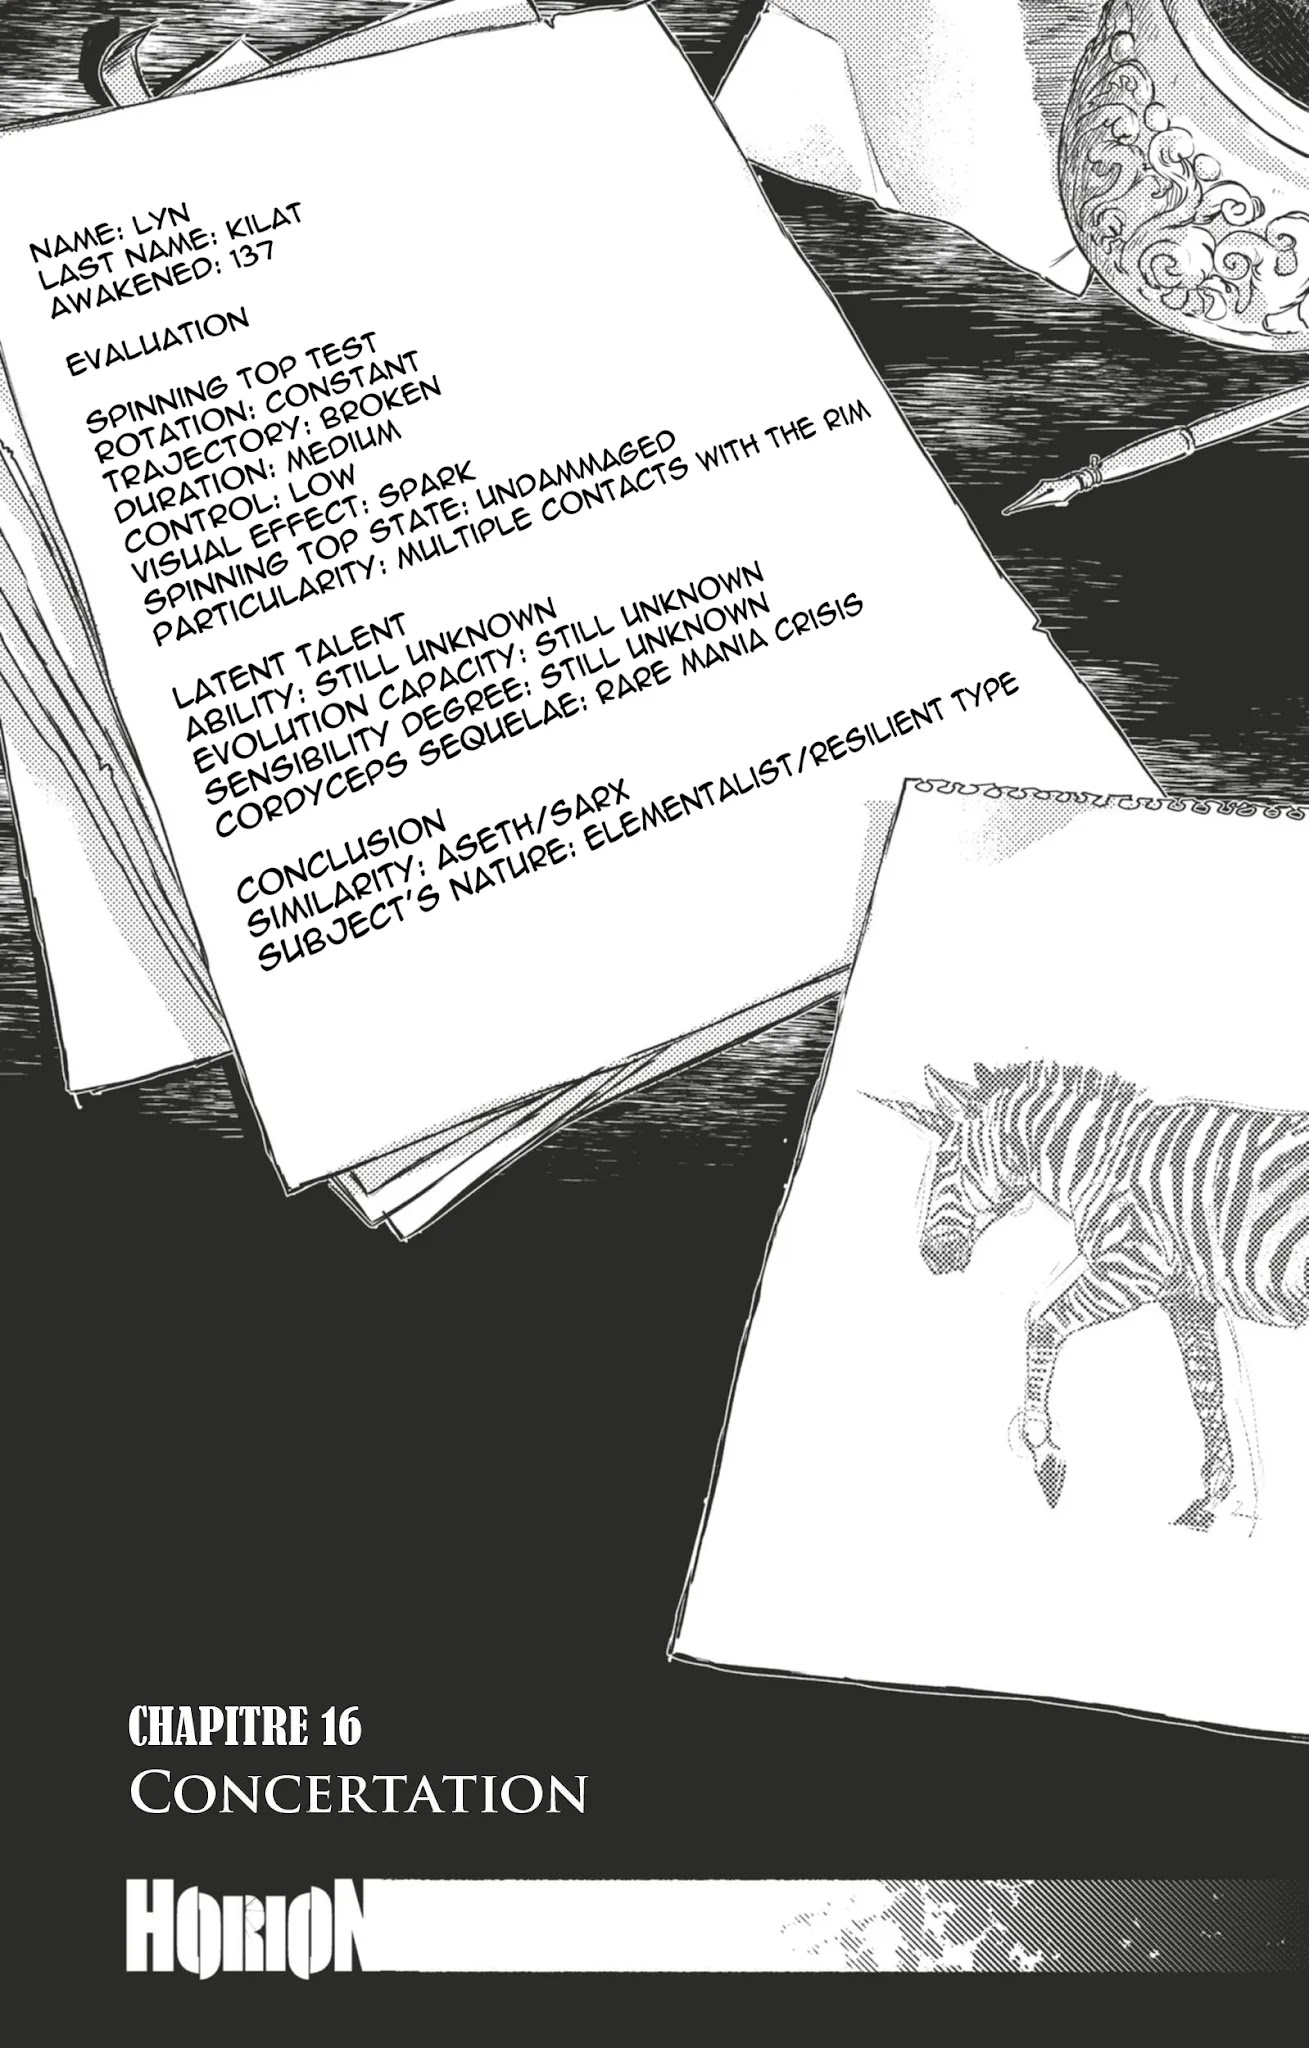 NAME: LYN
LAST NAME: KILAT
AWAKENED: 137
EVALUATION
SPINNING TOP TEST
ROTATION: CONSTANT
TRAJECTORY: BROKEN
DURATION: MEDIUM
CONTROL: LOW
VISUAL EFFECT: SPARK
SPINNING TOP STATE: UNDAMMAGED
PARTICULARITY: MULTIPLE CONTACTS WITH THE RIM
LATENT TALENT
ABILITY: STILL UNKNOWN
EVOLUTION CAPACITY: STILL UNKNOWN
SENSIBILITY DEGREE: STILL UNKNOWN
CORDYCEPS SEQUELAE: RARE MANIA CRISIS
CONCLUSION
SIMILARITY: ASETH/SARX
SUBJECT'S NATURE: ELEMENTALIST/RESILIENT TYPE
CHAPITRE 16
CONCERTATION
HORION